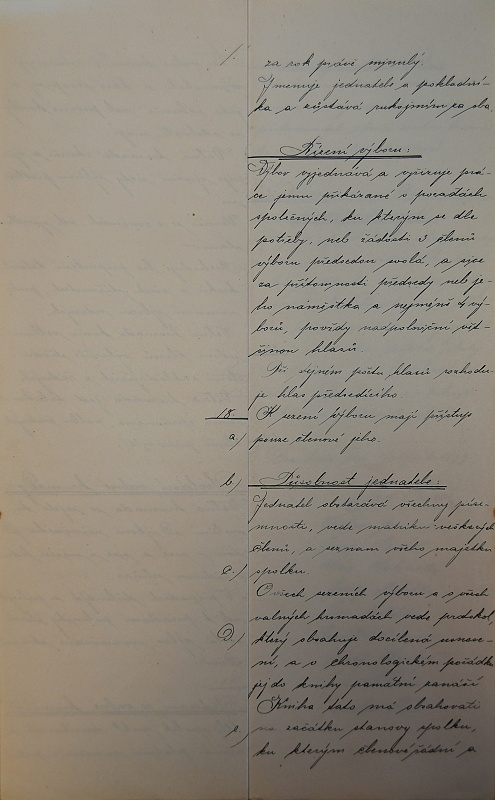 1. za rok právě minulý.
Jmenuje jednatele a pokladní-
ka a zůstává rukojmím za oba
Řízení výboru:
Výbor vyjednává a vyřizuje prá-
ce jemu přikázané v poradách
společných, ku kterým se dle
potřeby, neb žádosti 3 členů
výboru předsedou svolá, a sice
za přítomnosti předsedy neb je-
ho náměstka a nejméně 4 vý-
borů, povždy nadpoloviční vět-
šinou hlasů.
Při stejném počtu hlasů rozhodu-
je hlas předsedícího.
18 K sezení výboru mají přístup
a) pouze členové jeho.
b.) Působnost jednatele:
Jednatel obstarává všechny píse-
mnosti, vede matriku veškerých
členů, a seznam všeho majetku
c.) spolku.
O všech sezeních výboru a o všech
valných hromadách vede protokol,
D.) který obsahuje docílená usnese-
ní, a v chronologickém pořádku
jej do knihy památní zanáší
Kniha tato má obsahovati
e.) na začátku stanovy spolku,
ku kterým členové řádní a